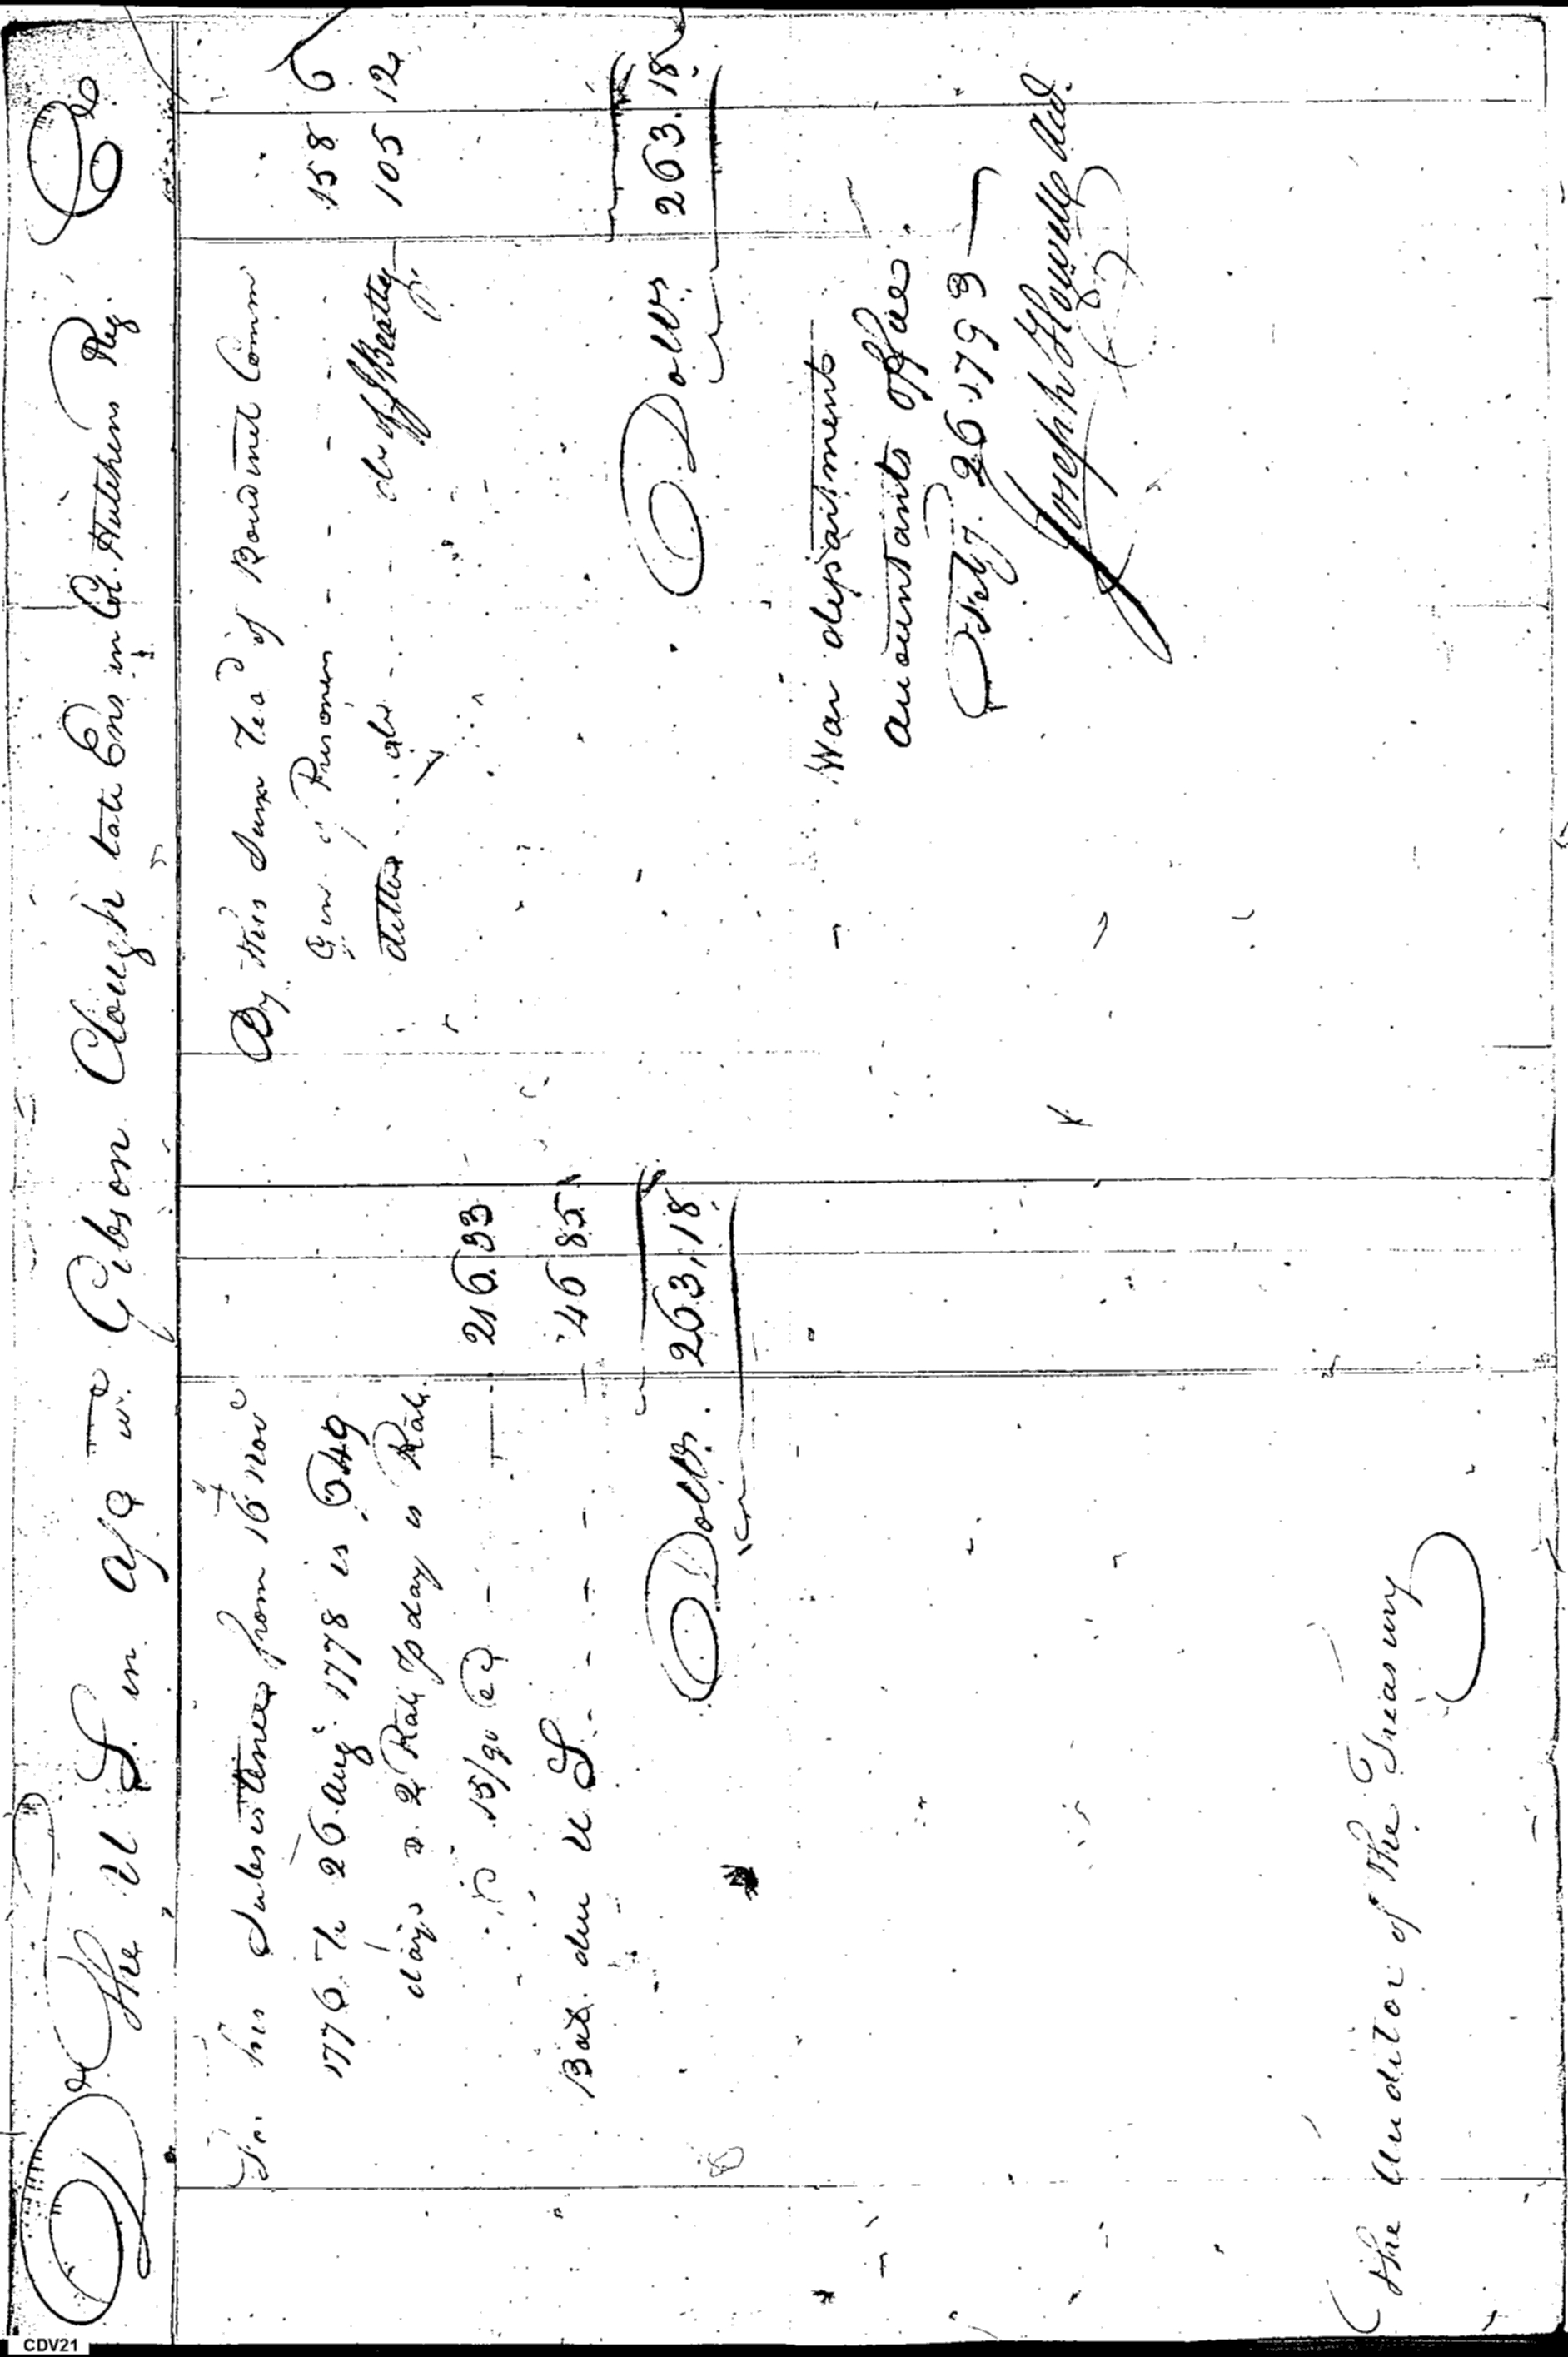 Dr The U S in a/c wth Gibson Clough late Ens in Col. Hutchins Reg. Cr
To his Subsistence from 16th Novr
1776 to 26 Augt 1778 is 649
days a 2 Rats p day is Rats
15/90 ea 216.33
Bal. due U S. 46 85
Dolls. 263,18
By this Sum rec'd of Boudinot Comm
Gen of Prisoners 158 6
ditto do of J Beatty 105 12
Dolls 263.18
War department
accountants office
Feby. 26 1793
Joseph Howell Aud.
The Auditor of the Treasury
CDV21